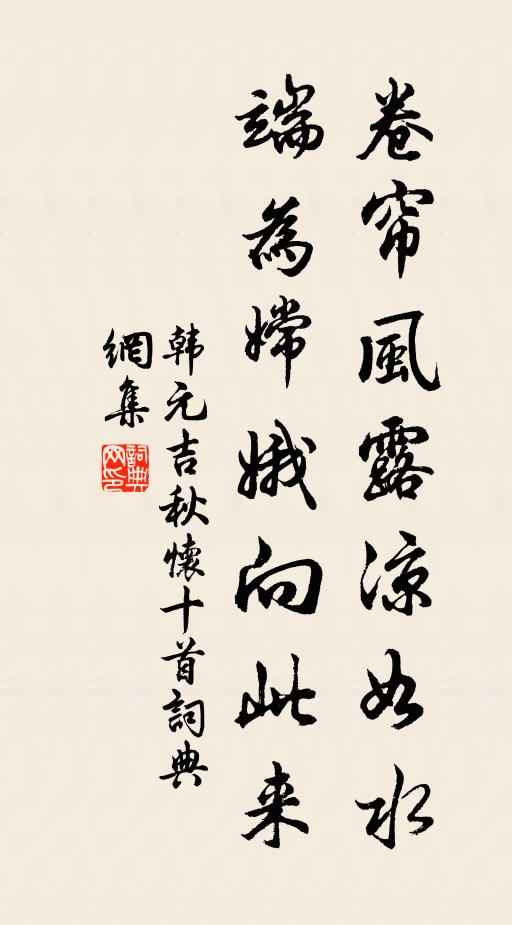 卷帘風露涼如水
端為嫦娥向此来
韩元吉秋懷十首詞典
網集
詞典
网印